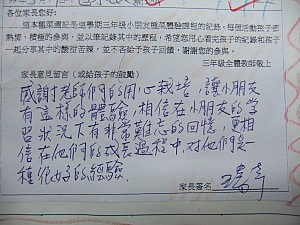 各位家長您好:
這本種菜書記是這學期三年級小朋友種菜體驗課程的紀錄。每個活動孩子都
熱情、積極的參與,並以筆記錄其中的歷程。希望您用心看完孩子的紀錄和孩子
一起分享其中的酸甜苦辣。並不吝給予孩子回饋。謝謝您的參與。
三年級全體教師敬上
家長意見留言(或給孩子的鼓勵)
感謝老師們的用心栽培,讓小朋友
有這樣的體驗,相信在小朋友的學
習狀況下有非常難忘的回憶,更相
信在他們的成長過程中,對他們是一
種很好的經驗.
家長簽名